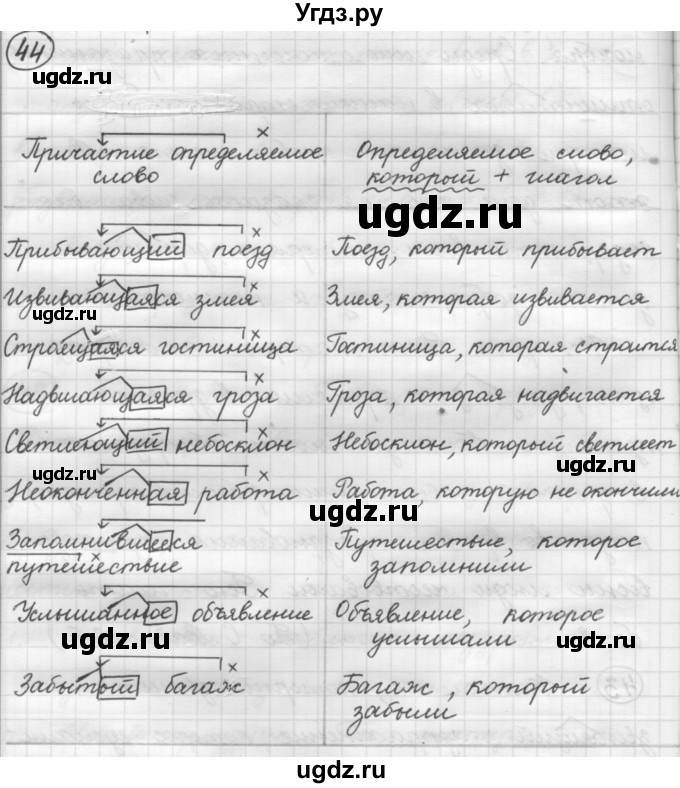 Угдз.ру
44
ugdz.ru
Причастие определяемое
слово
Определяемое слово,
который + глагол
ugdz.ru
Прибывающий поезд
Поезд, который прибывает
Извивающаяся змея
Змея, которая извивается
ugdz.ru
Строящаяся гостиница
Гостиница, которая строится
Надвигающаяся гроза
Гроза, которая надвигается
Светлеющий небосклон
Небосклон, который светлеет
ugdz.ru
ugdz.ru
Неоконченная работа
Работа, которую не окончили
ugdz.ru
Запомнившееся
путешествие
Путешествие, которое
запомнили
Услышанное объявление
Объявление, которое
услышали
ugdz.ru
ugdz.ru
Забытый багаж
Багаж, который
забыли
43
ugdz.ru
ugdz.ru